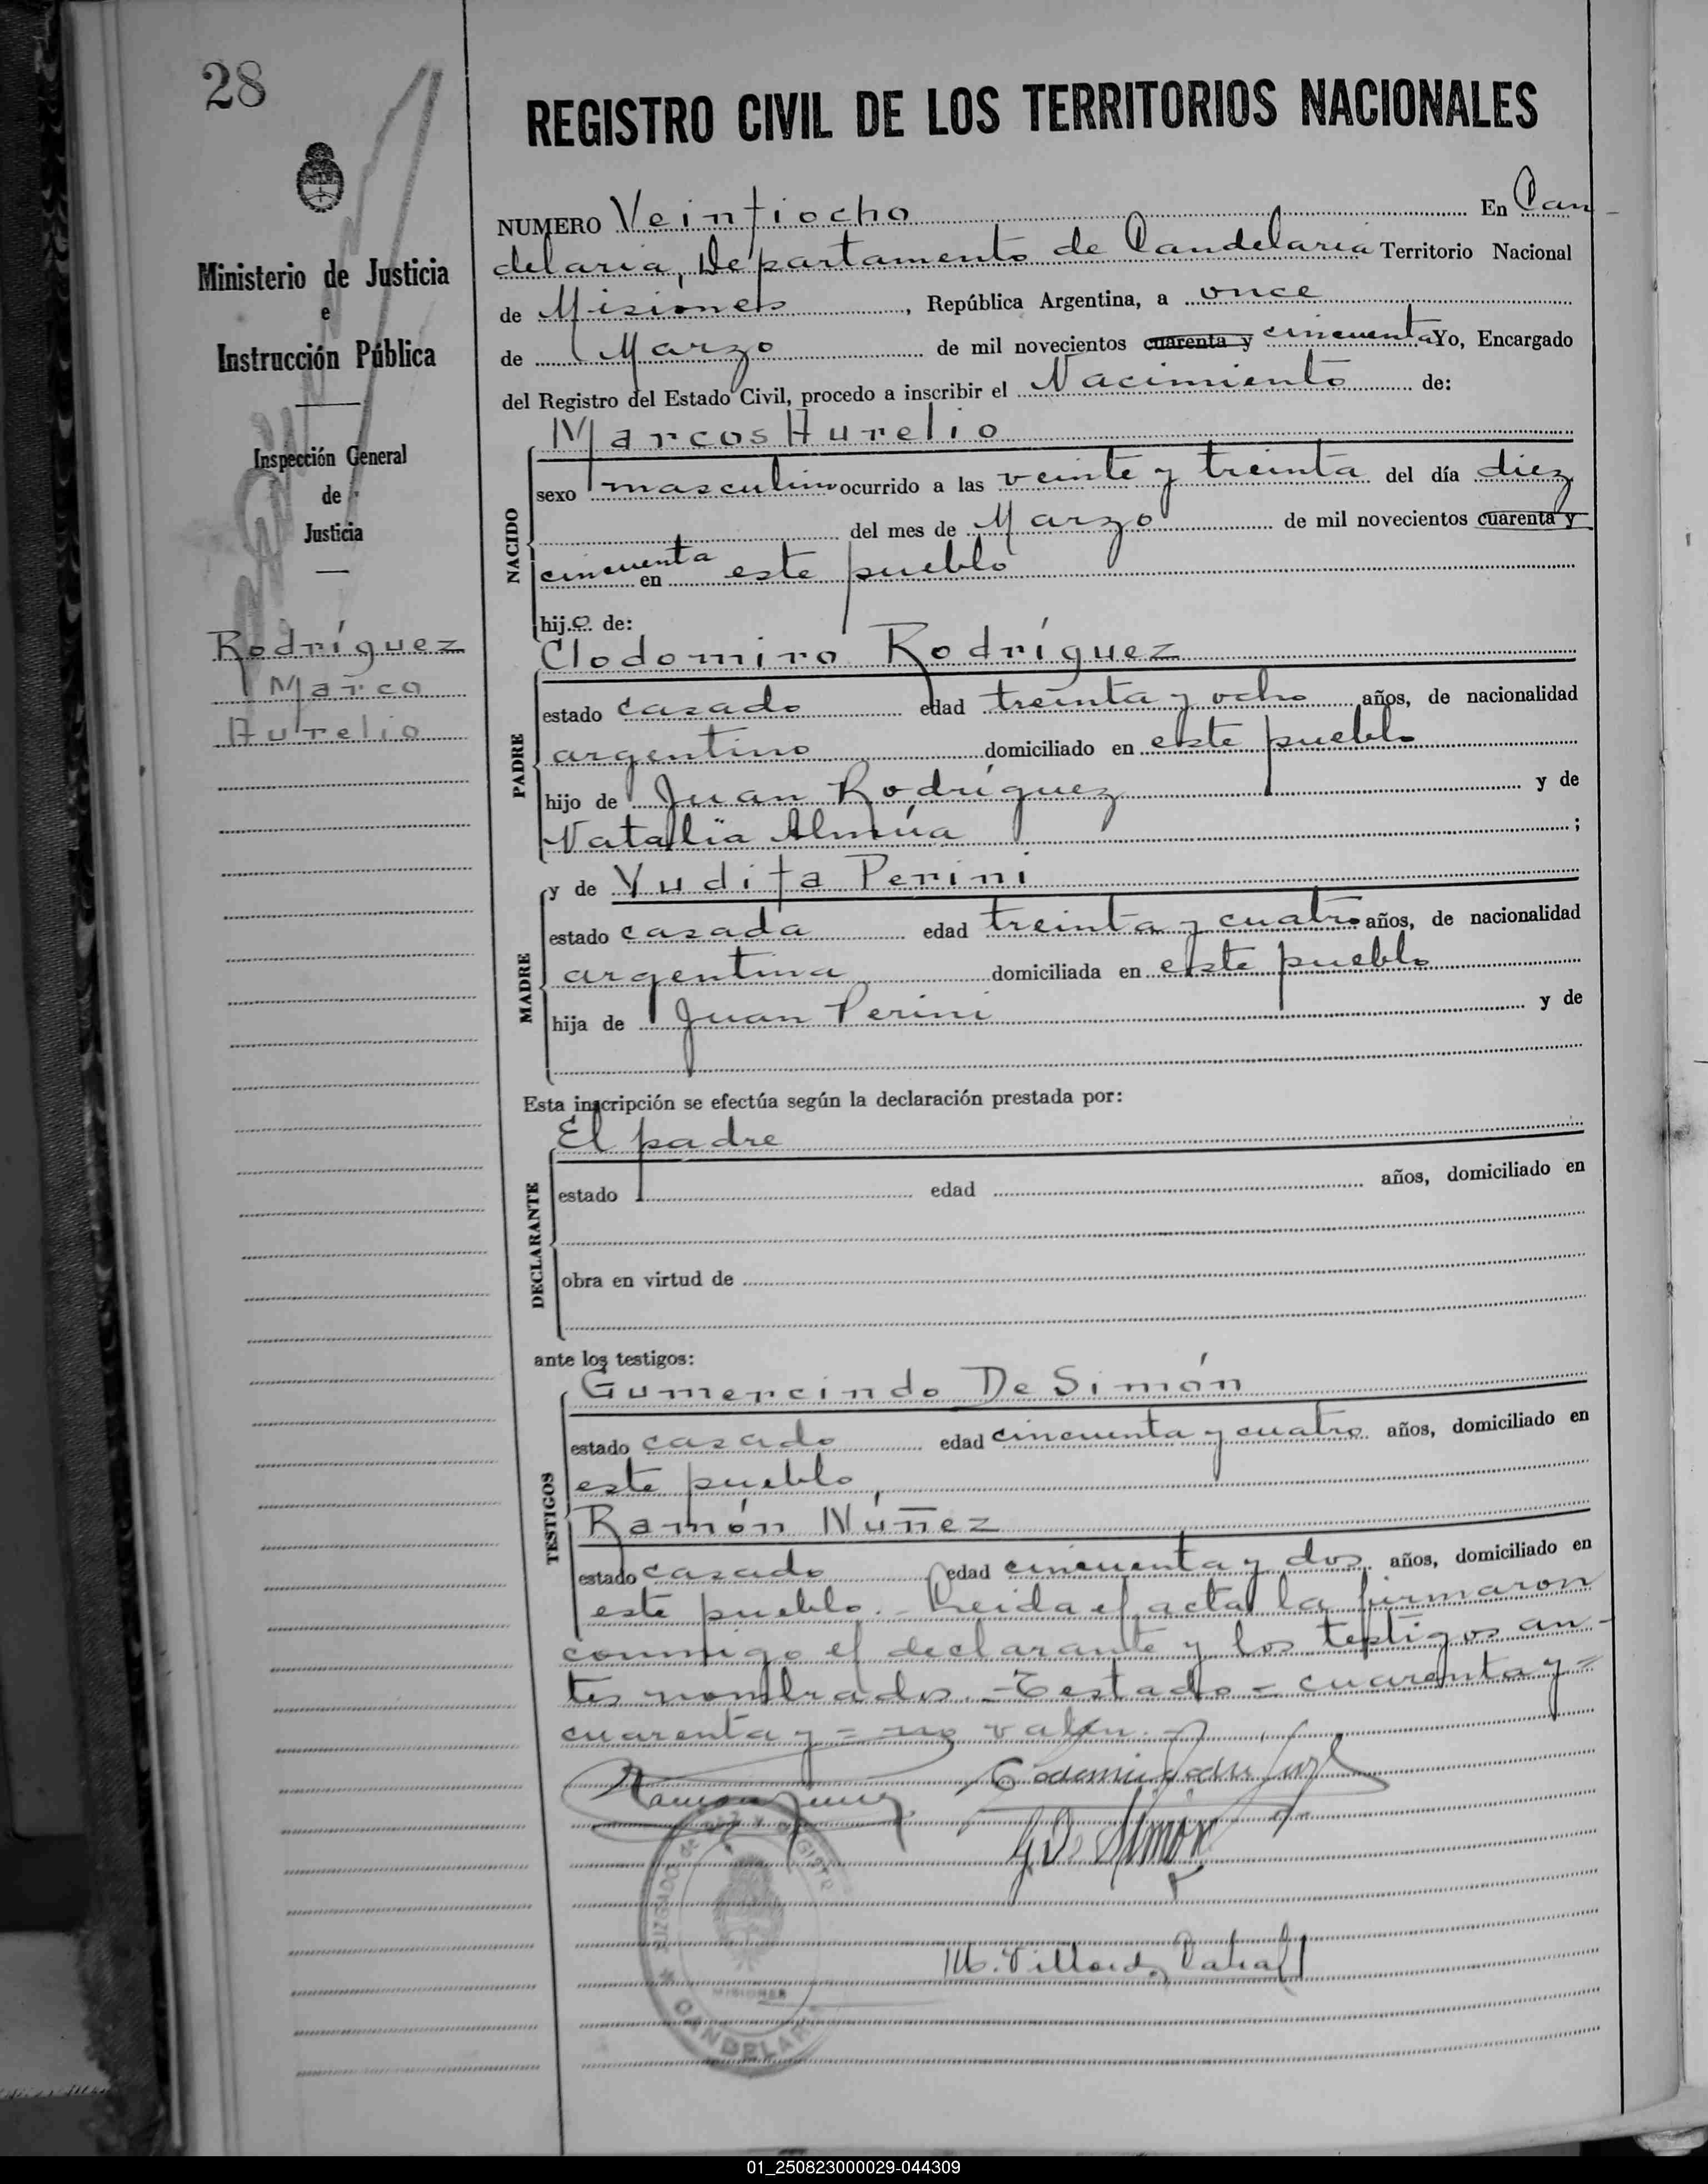 28
REGISTRO CIVIL DE LOS TERRITORIOS NACIONALES
Ministerio de Justicia
e
Instrucción Pública
Inspección General
de
Justicia
Rodríguez
Marco
Aurelio
NUMERO Veintiocho En Can-
delaria, Departamento de Candelaria Territorio Nacional
de Misiones, República Argentina, a once
de Marzo de mil novecientos cuarenta y cincuenta Yo, Encargado
del Registro del Estado Civil, procedo a inscribir el Nacimiento de:
Marcos Aurelio
NACIDO
sexo masculino ocurrido a las veinte y treinta del día diez
del mes de Marzo de mil novecientos cuarenta y
cincuenta en este pueblo
hijo de:
Clodomiro Rodríguez
PADRE
estado casado edad treinta y ocho años, de nacionalidad
argentino domiciliado en este pueblo
hijo de Juan Rodríguez y de
Natalia Almúa ;
MADRE
y de Yudita Perini
estado casada edad treinta y cuatro años, de nacionalidad
argentina domiciliada en este pueblo
hija de Juan Perini y de
Esta inscripción se efectúa según la declaración prestada por:
El padre
DECLARANTE
estado edad años, domiciliado en
obra en virtud de
ante los testigos:
TESTIGOS
Gumercindo De Simón
estado casado edad cincuenta y cuatro años, domiciliado en
este pueblo
Ramón Núñez
estado casado edad cincuenta y dos años, domiciliado en
este pueblo. - Leida el acta la firmaron
conmigo el declarante y los testigos an-
tes nombrados. - Testado = cuarenta y =
cuarenta y = no valen. -
G. De Simón
CANDELARIA
MISIONES
01_250823000029-044309